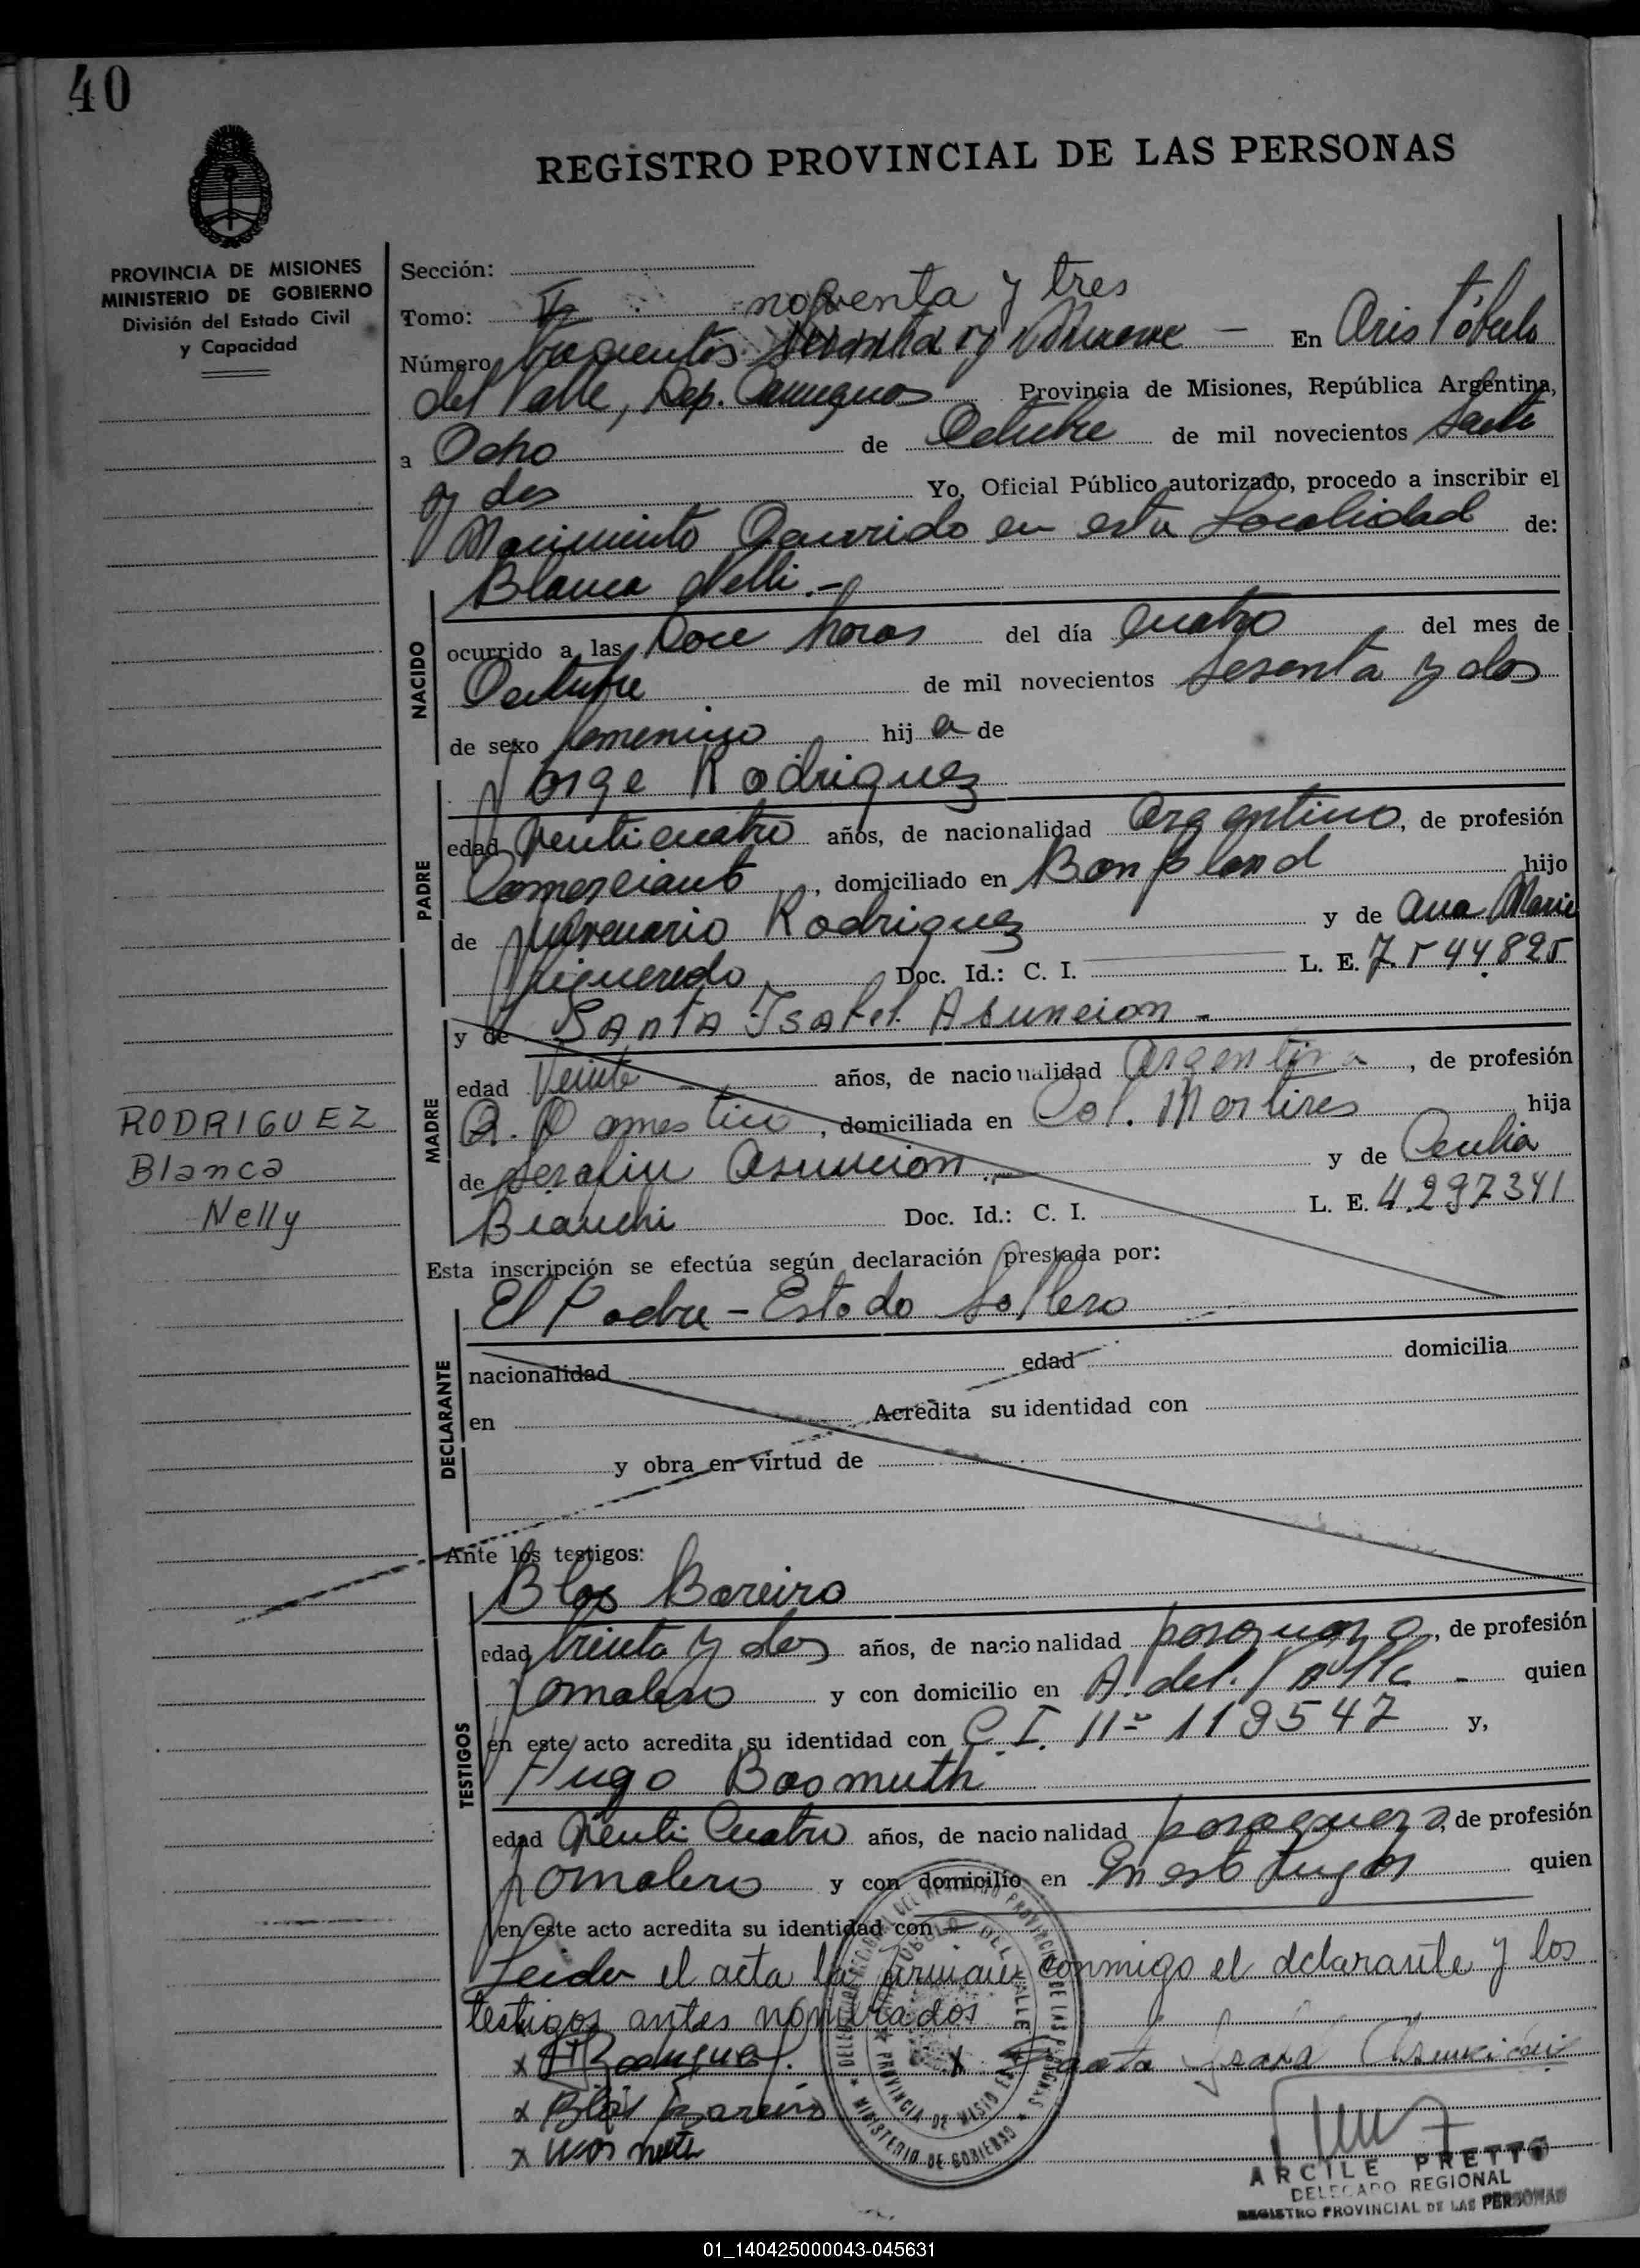 40
REGISTRO PROVINCIAL DE LAS PERSONAS
PROVINCIA DE MISIONES
MINISTERIO DE GOBIERNO
División del Estado Civil
y Capacidad
Sección:
Tomo: II noventa y tres
Número trescientos - En Aristóbulo
del Valle, Dep. Cainguas Provincia de Misiones, República Argentina,
a Ocho de Octubre de mil novecientos
y dos Yo, Oficial Público autorizado, procedo a inscribir el
Nacimiento Ocurrido en esta Localidad de:
Blanca Nelli.-
NACIDO
ocurrido a las Doce horas del día cuatro del mes de
Octubre de mil novecientos sesenta y dos
de sexo femenino hija de
Jorge Rodriguez
PADRE
edad Venticuatro años, de nacionalidad Argentino, de profesión
Comerciante, domiciliado en Bonpland hijo
de Juvenario Rodriguez y de Ana Maria
Figueredo Doc. Id.: C. I. L. E. 7.544.825
y de Santa Isabel Asuncion.-
MADRE
edad Veinte años, de nacionalidad Argentina, de profesión
Q. Domestico, domiciliada en Col. Martires hija
de Serafin Asuncion y de Cecilia
Bianchi Doc. Id.: C. I. L. E. 4.297341
RODRIGUEZ
Blanca
Nelly
Esta inscripción se efectúa según declaración prestada por:
El Padre - Estado Soltero
DECLARANTE
nacionalidad edad domicilia
en Acredita su identidad con
y obra en virtud de
Ante los testigos:
Blas Bareiro
TESTIGOS
edad treinta y dos años, de nacionalidad paraguayo, de profesión
Jornalero y con domicilio en A. del Valle - quien
en este acto acredita su identidad con C. I. Nº 119547 y,
Hugo Basmuth
edad Venti Cuatro años, de nacionalidad paraguayo, de profesión
jornalero y con domicilio en En este Lugar quien
en este acto acredita su identidad con
Leida el acta la firman conmigo el declarante y los
testigos antes nombrados
x Rodriguez x Santa Isabel Asunción
x Blas Bareiro
x
ARCILE PRETTO
DELEGADO REGIONAL
REGISTRO PROVINCIAL DE LAS PERSONAS
MINISTERIO DE GOBIERNO
01_140425000043-045631